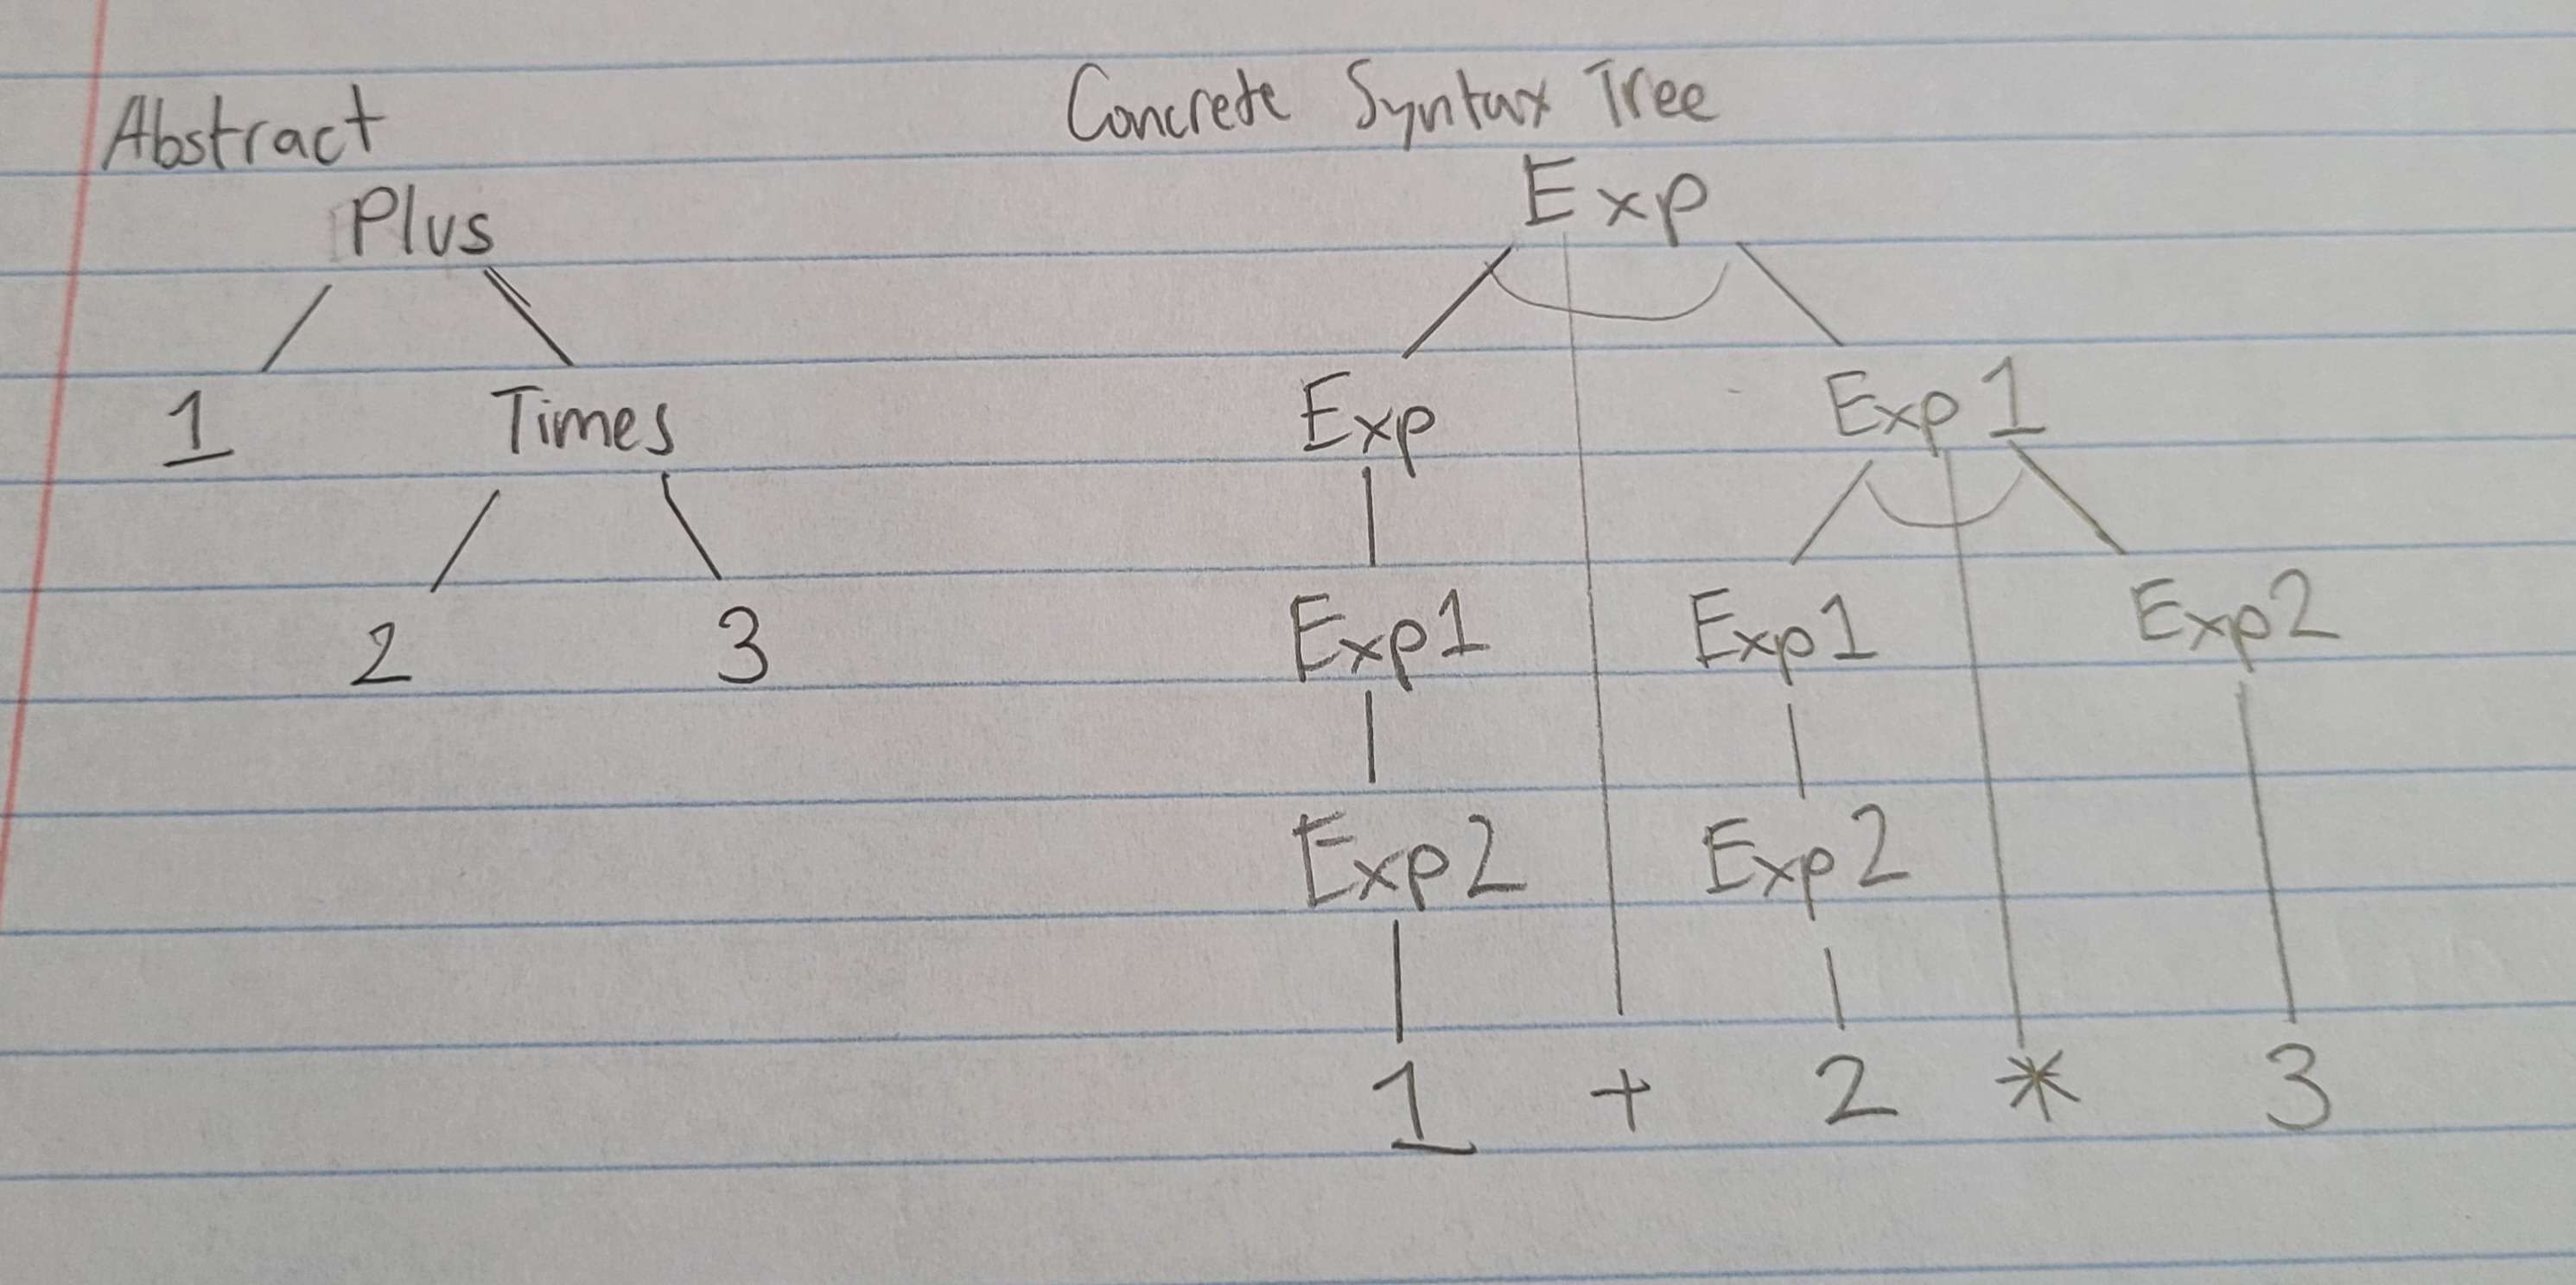 Abstract
Plus
1 Times
2 3
Concrete Syntax Tree
Exp
Exp Exp 1
Exp1 Exp1 Exp2
Exp2 Exp2
1 + 2 * 3